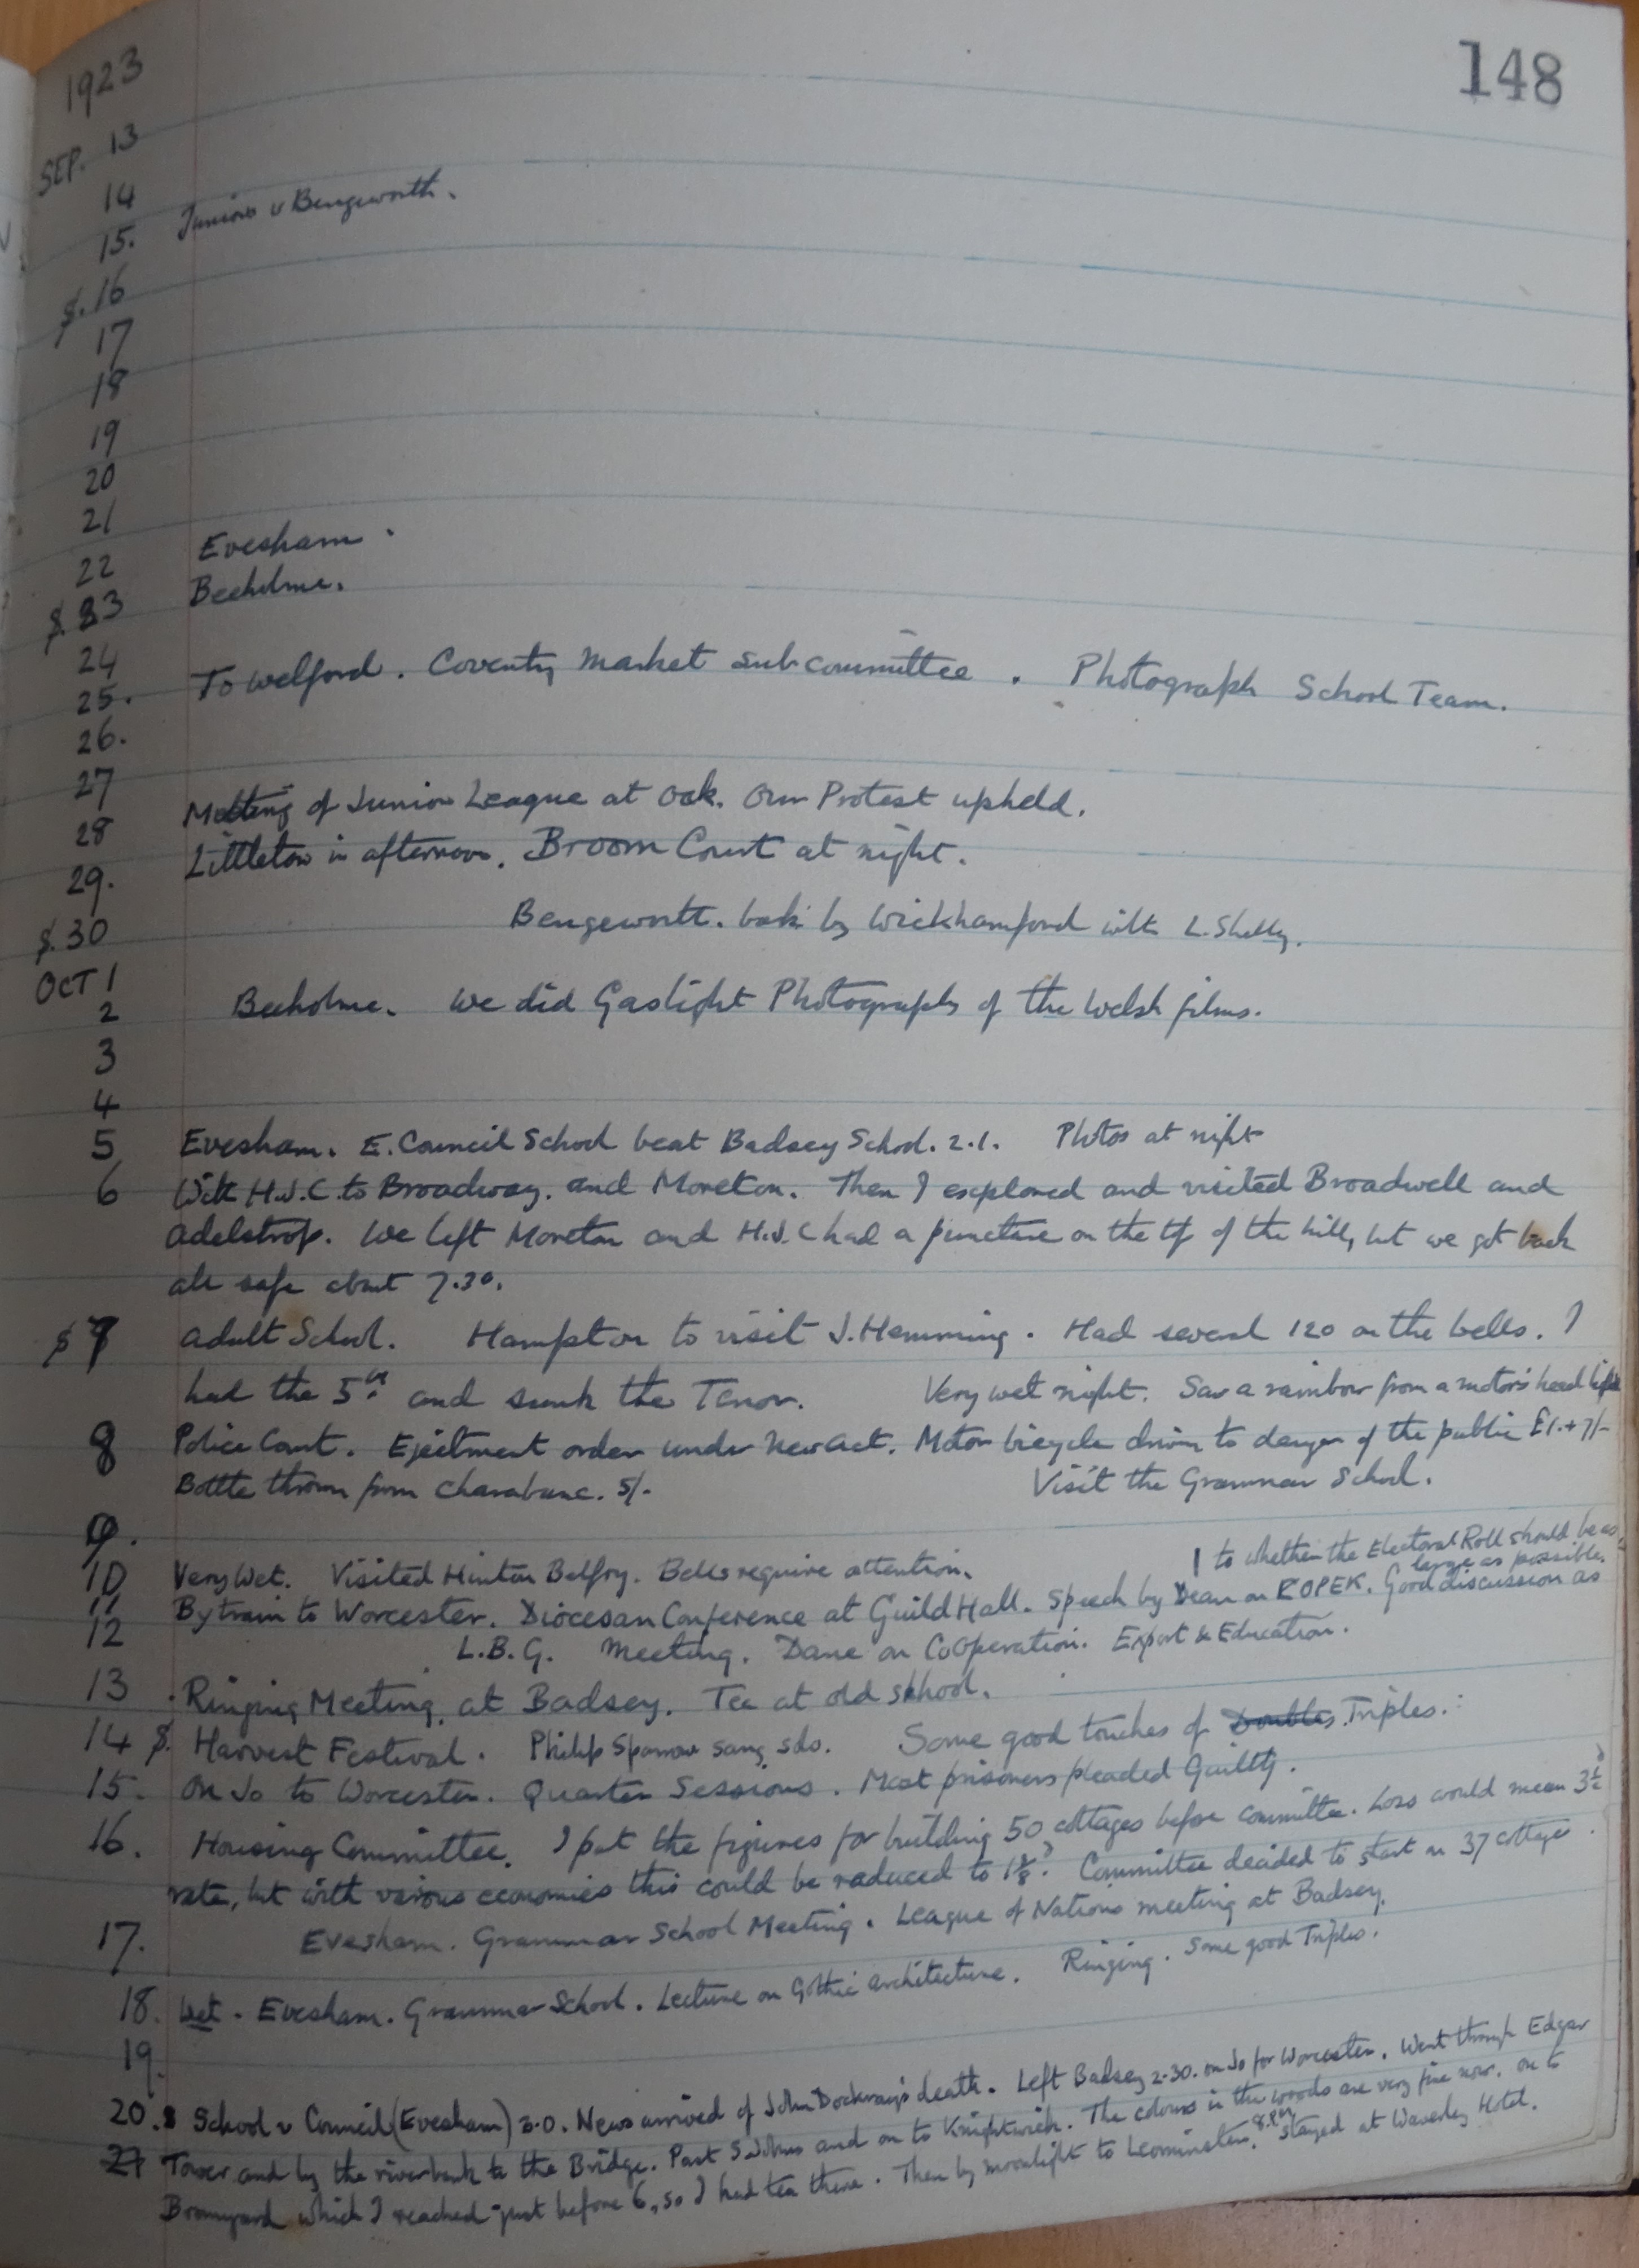 148
1923
SEP. 13
14
15. Juniors v Bengeworth.
S. 16
17
18
19
20
21
22 Evesham.
S. 23 Beeholme.
24
25. To Welford. Coventry Market Subcommittee. Photograph School Team.
26.
27
28 Meeting of Junior League at Oak. Our Protest upheld.
29. Littleton in afternoon. Broom Court at night.
S. 30 Bengeworth. back by Wickhamford with L. Shelly.
OCT 1
2 Beeholme. We did Gaslight Photographs of the Welsh films.
3
4
5 Evesham. E. Council School beat Badsey School. 2.1. Photos at night
6 With H.J.C. to Broadway. and Moreton. Then I explored and visited Broadwell and
Adelstrop. We left Moreton and H.J.C had a puncture on the top of the hill, but we got back
all safe about 7.30.
S 7 Adult School. Hampton to visit J. Hemming. Had several 120 on the bells. I
had the 5th and sunk the Tenor. Very wet night. Saw a rainbow from a motor's head light
8 Police Court. Ejectment order under New Act. Motor bicycle driven to danger of the public £1.+7/-
Bottle thrown from Charabanc. 5/- Visit the Grammar School.
9.
10 Very Wet. Visited Hinton Belfry. Bells require attention. to whether the Electoral Roll should be as
large as possible.
11 By train to Worcester. Diocesan Conference at Guild Hall. Speech by Dean on Good discussion as
12 L.B.G. Meeting. Dane on Cooperation. Export & Education.
13 Ringing Meeting at Badsey. Tea at old school.
14 S. Harvest Festival. Philip Sparrow sang solo. Some good touches of Doubles Triples.
15. On Jo to Worcester. Quarter Sessions. Most prisoners pleaded Guilty.
16. Housing Committee. I put the figures for building 50 cottages before committee. Loss would mean 3½d
rate, but with various economies this could be reduced to Committee decided to start on 37 cottages.
17. Evesham. Grammar School Meeting. League of Nations meeting at Badsey.
18. Wet. Evesham. Grammar School. Lecture on Gothic architecture. Ringing. Some good Triples.
19.
20. School v Council (Evesham) 3.0. News arrived of John Dockray's death. Left Badsey 2.30. on Jo for Worcester. Went through Edgar
21 Tower and by the riverbank to the Bridge. Past S. Johns and on to Knightwick. The colours in the woods are very fine now. on to
Bromyard which I reached just before 6, so I had tea there. Then by moonlight to Leominster. 8.P.M. Stayed at Waverley Hotel.